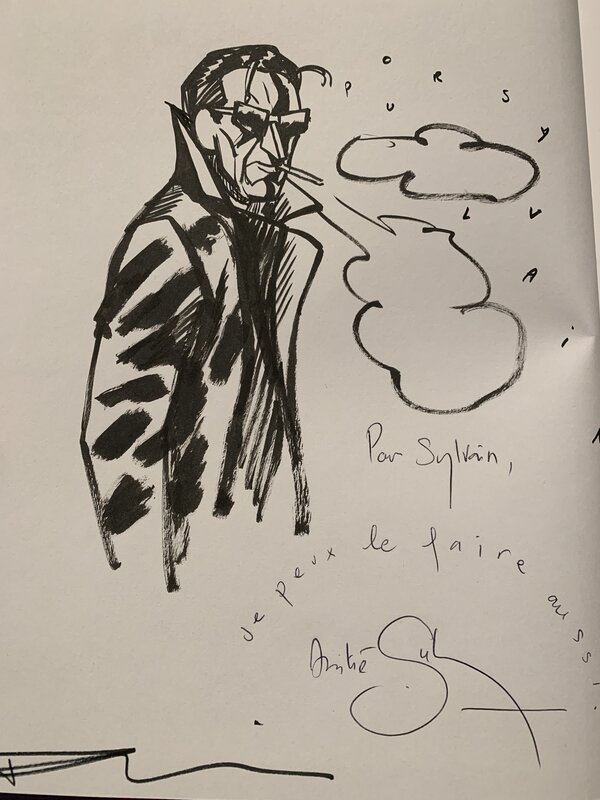 POUR SYLVAi
Pour Sylvain,
Je peux le faire aussi !
Amitié